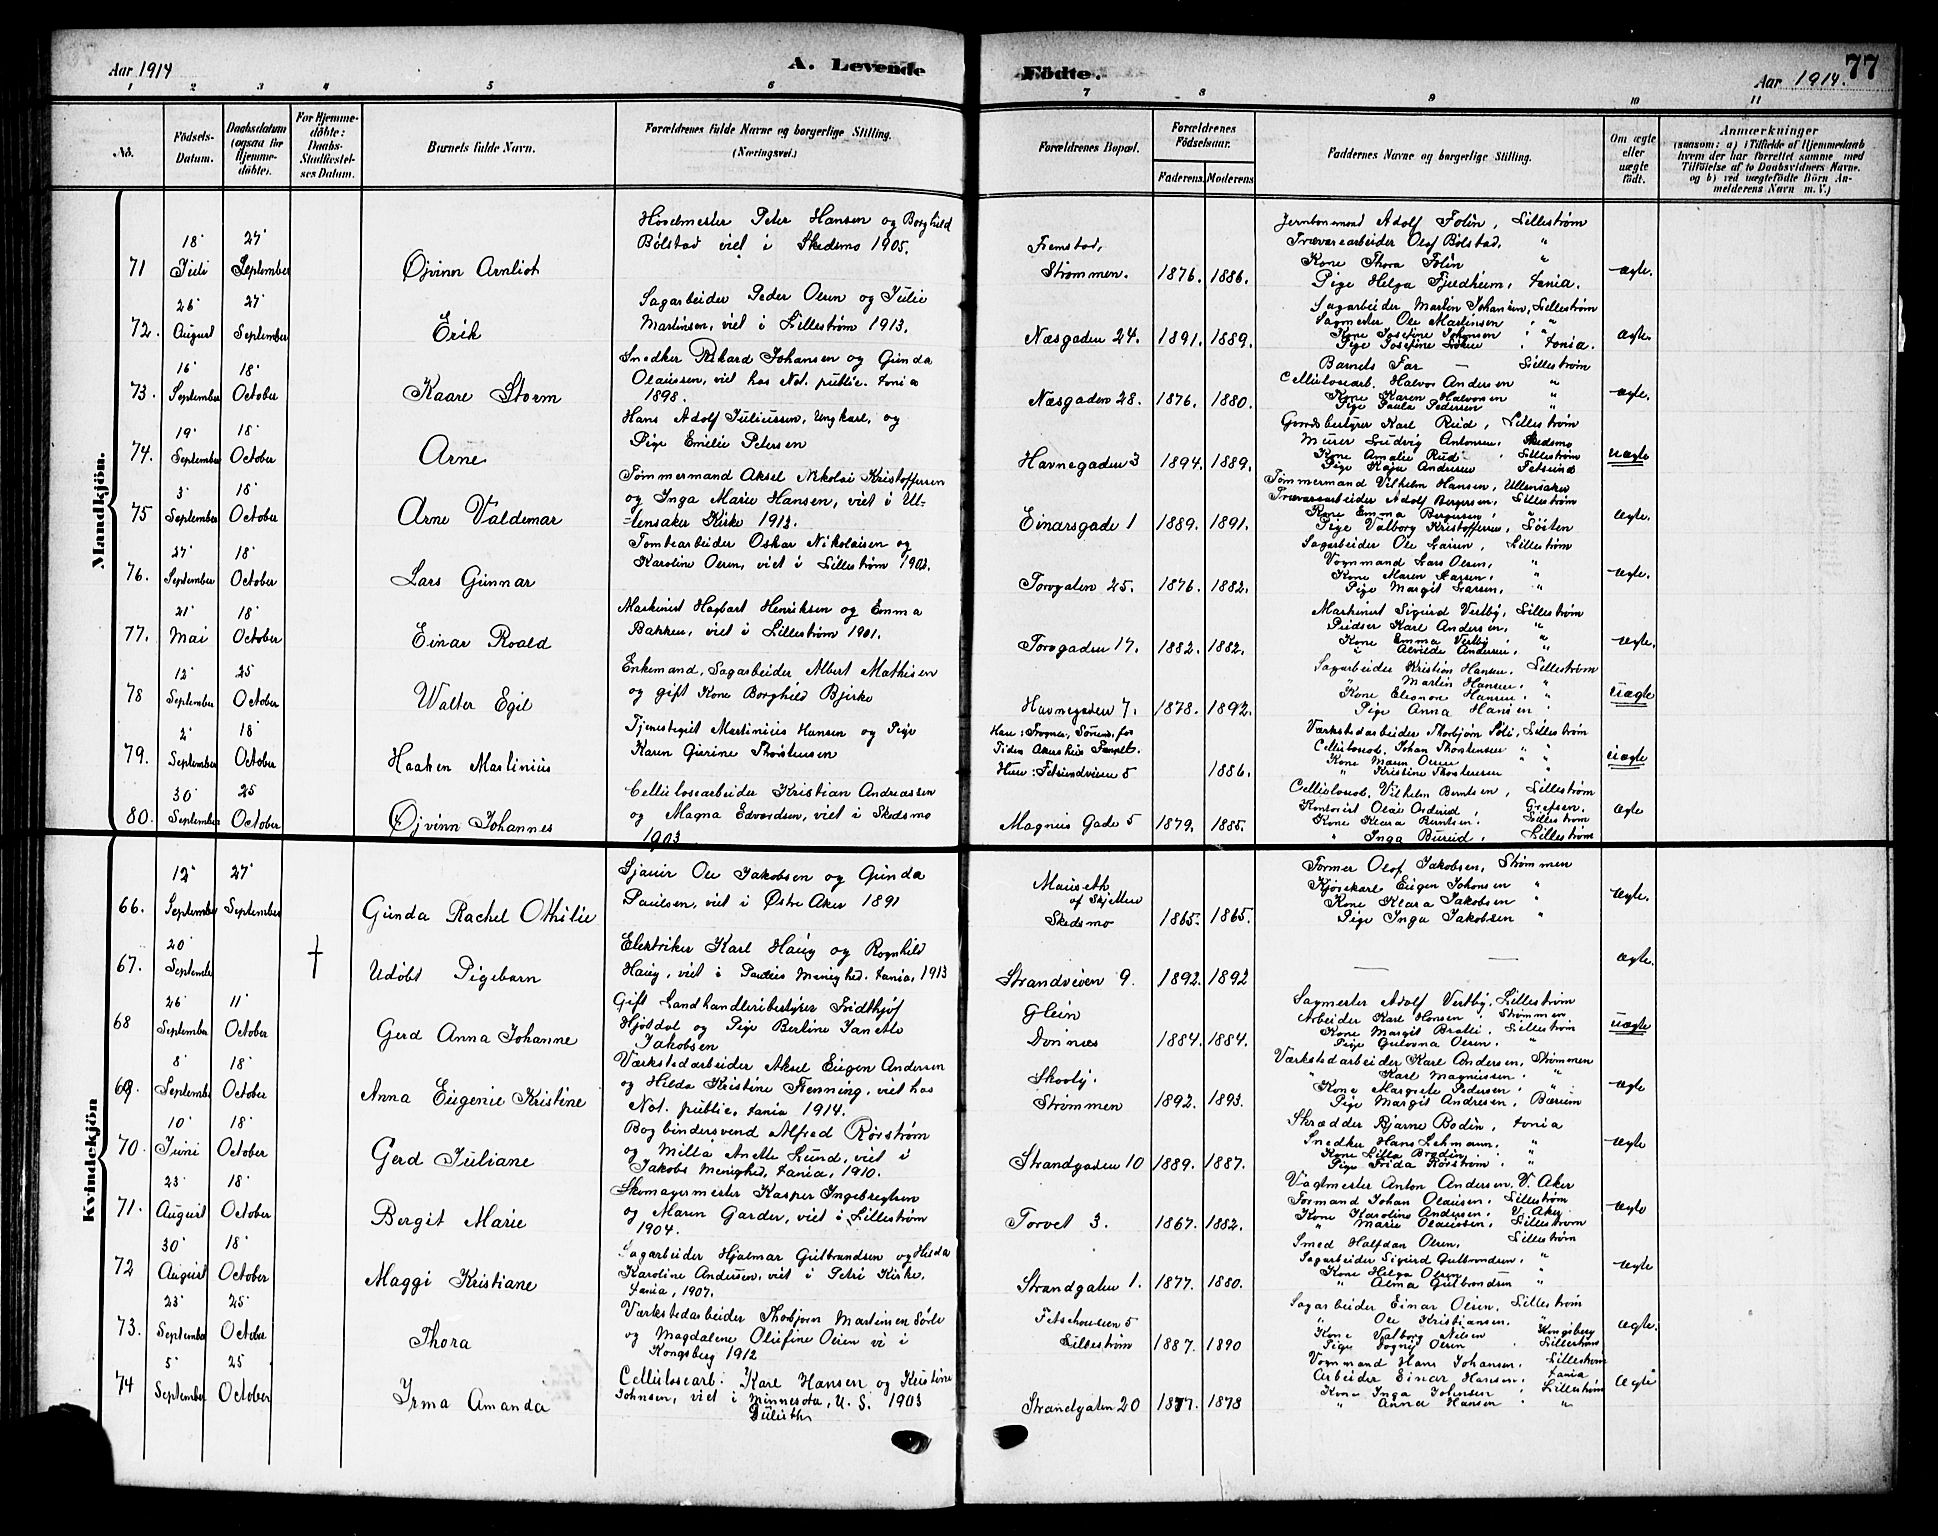 Aar 1914
A. Levende
Födte.
77
Aar 1914.
1 2 3 4 5 6 7 8 9 10 11
No.
Födsels-Datum.
Daabsdatum (ogsaa för Hjemme-döbte).
For Hjemme-döbte: Daabs-Stadfæstel-ses Datum.
Barnets fulde Navn.
Forældrenes fulde Navne og borgerlige Stilling.
(Næringsvei.)
Forældrenes Bopæl.
Forældrenes Födselsaar.
Faderens. Moderens.
Faddernes Navne og borgerlige Stilling.
Om ægte eller uægte födt.
Anmærkninger
(saasom: a) i Tilfælde af Hjemmedaab
hvem der har forrettet samme med
Tilföielse af to Daabsvidners Navne.
og b) ved uægtefödte Börn An-
melderens Navn m. V.)
Mandkjön.
71 18 Juli 27 September Øjvinn Arnliot
Peter Hansen og Borghild
Bølstad viet i Skedsmo 1905.
Strømmen. 1876. 1886.
Adolf Folin, Lillestrøm
Træværearbeider Olaf Bølstad, "
Kone Thora Folin "
Pige Helga Fjeldheim,
ægte.
72. 26 August 27 September Erik
Sagarbeider Peder Olsen og Julie
Martinsen, viet i Lillestrøm 1913.
Næsgaden 24. 1891. 1889.
Sagarbeider Martin Johansen, Lillestrøm
Sagmester Ole Martinsen "
Kone Josefine Johansen "
ægte.
73. 16 September 18 October Kaare Storm
Snedker Rikard Johansen og Gunda
Olaussen, viet hos Not. public.
1898.
Næsgaden 28. 1876. 1880.
Barnets Far — Lillestrøm
Cellulosearb. Halvor Andersen "
Kone Karen Halvorsen "
Pige Paula Pedersen "
ægte.
74. 19 September 18 October Arne
Hans Adolf Juliussen, Ungkarl, og
Pige Emilie Petersen
Havnegaden 3 1894. 1889.
Gaardsbestyrer Karl Rud, Lillestrøm
Murer Ludvig Antonsen, Skedsmo
Kone Amalie Rud, Lillestrøm
Pige Kaja Andersen Fetsund
uægte
75 3 September 18 October Arne Valdemar
Tømmermand Aksel Nikolai Kristoffersen
og Inga Marie Hansen, viet i Ul-
lensaker Kirke 1913.
Einarsgade 1 1889. 1891.
Tømmermand Vilhelm Hansen, Ullensaker
Træværearbeider Adolf Bergersen, Lillestrøm
Kone Emma Bergersen, "
Pige Valborg Kristoffersen, Løiten
ægte.
76. 27 September 18 October Lars Gunnar
Tomtearbeider Oskar Nikolaisen og
Karoline Olsen, viet i Lillestrøm 1902.
Torvgaten 25. 1876. 1882.
Sagarbeider Ole Larsen, Lillestrøm
Vognmand Lars Olsen, "
Kone Maren Larsen, "
Pige Margit Larsen, "
ægte.
77. 21 Mai 18 October Einar Roald
Maskinist Hagbart Henriksen og Emma
Bakken, viet i Lillestrøm 1901.
Torvgaden 17. 1882. 1882.
Maskinist Sigurd Vestby, Lillestrøm
Pudser Karl Andersen, "
Kone Emma Vestby, "
" Alvilde Andersen, "
ægte.
78 12 September 25 October Walter Egil
Enkemand, Sagarbeider Albert Mathisen
og gift Kone Borghild Bjerke
Havnegaden 7. 1878. 1892.
Sagarbeider Kristian Hansen, Lillestrøm
" Martin Hansen, "
Kone Eleonore Hansen, "
Pige Anna Hansen "
uægte
79. 2 September 18 October Haaken Martinius
Tjenestegut Martinius Hansen og Pige
Karen Gurine Thorstensen
Han: Frogner, Sørum, for
Tiden Akershus
Hun: Fetsundveien 5 1886.
Værkstedarbeider Thorbjørn Lillestrøm
Cellulosearb. Johan Thorstensen " "
Kone Maren Olsen " "
" Kristine Thorstensen "
uægte
80. 30 September 25 October Øjvinn Johannes
Cellulosearbeider Kristian Andreassen
og Magna Edvardsen, viet i Skedsmo
1903
Magnus Gade 5 1879. 1885.
Cellulosearb. Vilhelm Berntsen, Lillestrøm
Kontorist Olai Grefsen.
Kone Klara Berntsen, Lillestrøm
" Inga Burud, Lillestrøm
ægte
Kvindekjön
66. 12 September 27 September Gunda Rachel Othilie
Ole Jakobsen og Gunda
Paulsen, viet i Østre Aker 1891
Mauseth
af Skjetten
Skedsmo 1865. 1865.
Former Olaf Jakobsen, Strømmen
Kjørekarl Eugen Johansen "
Kone Klara Jakobsen "
Pige Inga Jakobsen "
ægte.
67. 20 September † Udøbt Pigebarn
Elektriker Karl Haug og Ragnhild
Haug, viet i Paulus Menighed. 1913
Strandveien 9. 1892. 1892
— —
ægte.
68 26 September 11 October Gerd Anna Johanne
Gift Landhandleribestyrer Fridthjof
Hjøldal og Pige Bertine
Jakobsen
Glein
Dønnes 1884. 1884.
Sagmester Adolf Vestby, Lillestrøm
Arbeider Karl Hansen, Strømmen
Kone Margit Bratli, Lillestrøm
Pige Gulovna Olsen, "
uægte
69. 8 September 18 October Anna Eugenie Kristine
Værkstedarbeider Aksel Eugen Andersen
og Hilda Kristine Flenning, viet hos
Not. public. 1914.
Skovly.
Strømmen 1892. 1893.
Værkstedarbeider Karl Andersen, Strømmen
" Karl Magnussen, "
Kone Margrete Pedersen, "
Pige Margit Andresen, Bærum
ægte
70. 10 Juni 18 October Gerd Juliane
Bogbindersvend Alfred Rørstrøm
og Milla Anette Lund, viet i
Jakobs Menighed, 1910.
Strandgaden 10 1889. 1887.
Skrædder Bjarne Bodin,
Snedker Hans Lehmann, "
Kone Lilla Bradin, "
Pige Frida Rørstrøm, "
ægte
71. 23 August 18 October Bergit Marie
Skomagermester Kasper Ingebregtsen
og Maren Garder, viet i Lillestrøm
1904.
Torvet 3. 1867. 1882.
Vagtmester Anton Andersen, V. Aker
Formand Johan Olausen, Lillestrøm
Kone Karoline Andersen, V. Aker
" Marie Olaussen, Lillestrøm
ægte
72 30 August 18 October Maggi Kristiane
Sagarbeider Hjalmar Gulbrandsen og Hilda
Karoline Andersen, viet i Petri Kirke,
1907.
Strandgaten 1. 1877. 1880.
Smed Halfdan Olsen, Lillestrøm
Sagarbeider Sigurd Gulbrandsen, "
Kone Helga Olsen "
" Alma Gulbrandsen "
ægte
73. 23 September 25 October Thora
Værkstedarbeider Thorbjørn Martinsen Sørli
og Magdalene Olufine Olsen vi i
Kongsberg 1912
Lillestrøm 1887. 1890
Sagarbeider Einar Olsen, Lillestrøm
" Ole Kristiansen, "
Kone Valborg Nilsen Kongsberg
Pige Olsen Lillestrøm
ægte.
74 5 September 25 October Irma Amanda
Cellulosearb. Karl Hansen og Kristine
Johnsen, viet i Minnesota, U. S. 1903
Duluth
Strandgaten 20 1877. 1878
Vognmand Hans Johansen, Lillestrøm
Arbeider Einar Hansen,
Kone Inga Johnsen, Lillestrøm
" Anna Hansen "
ægte